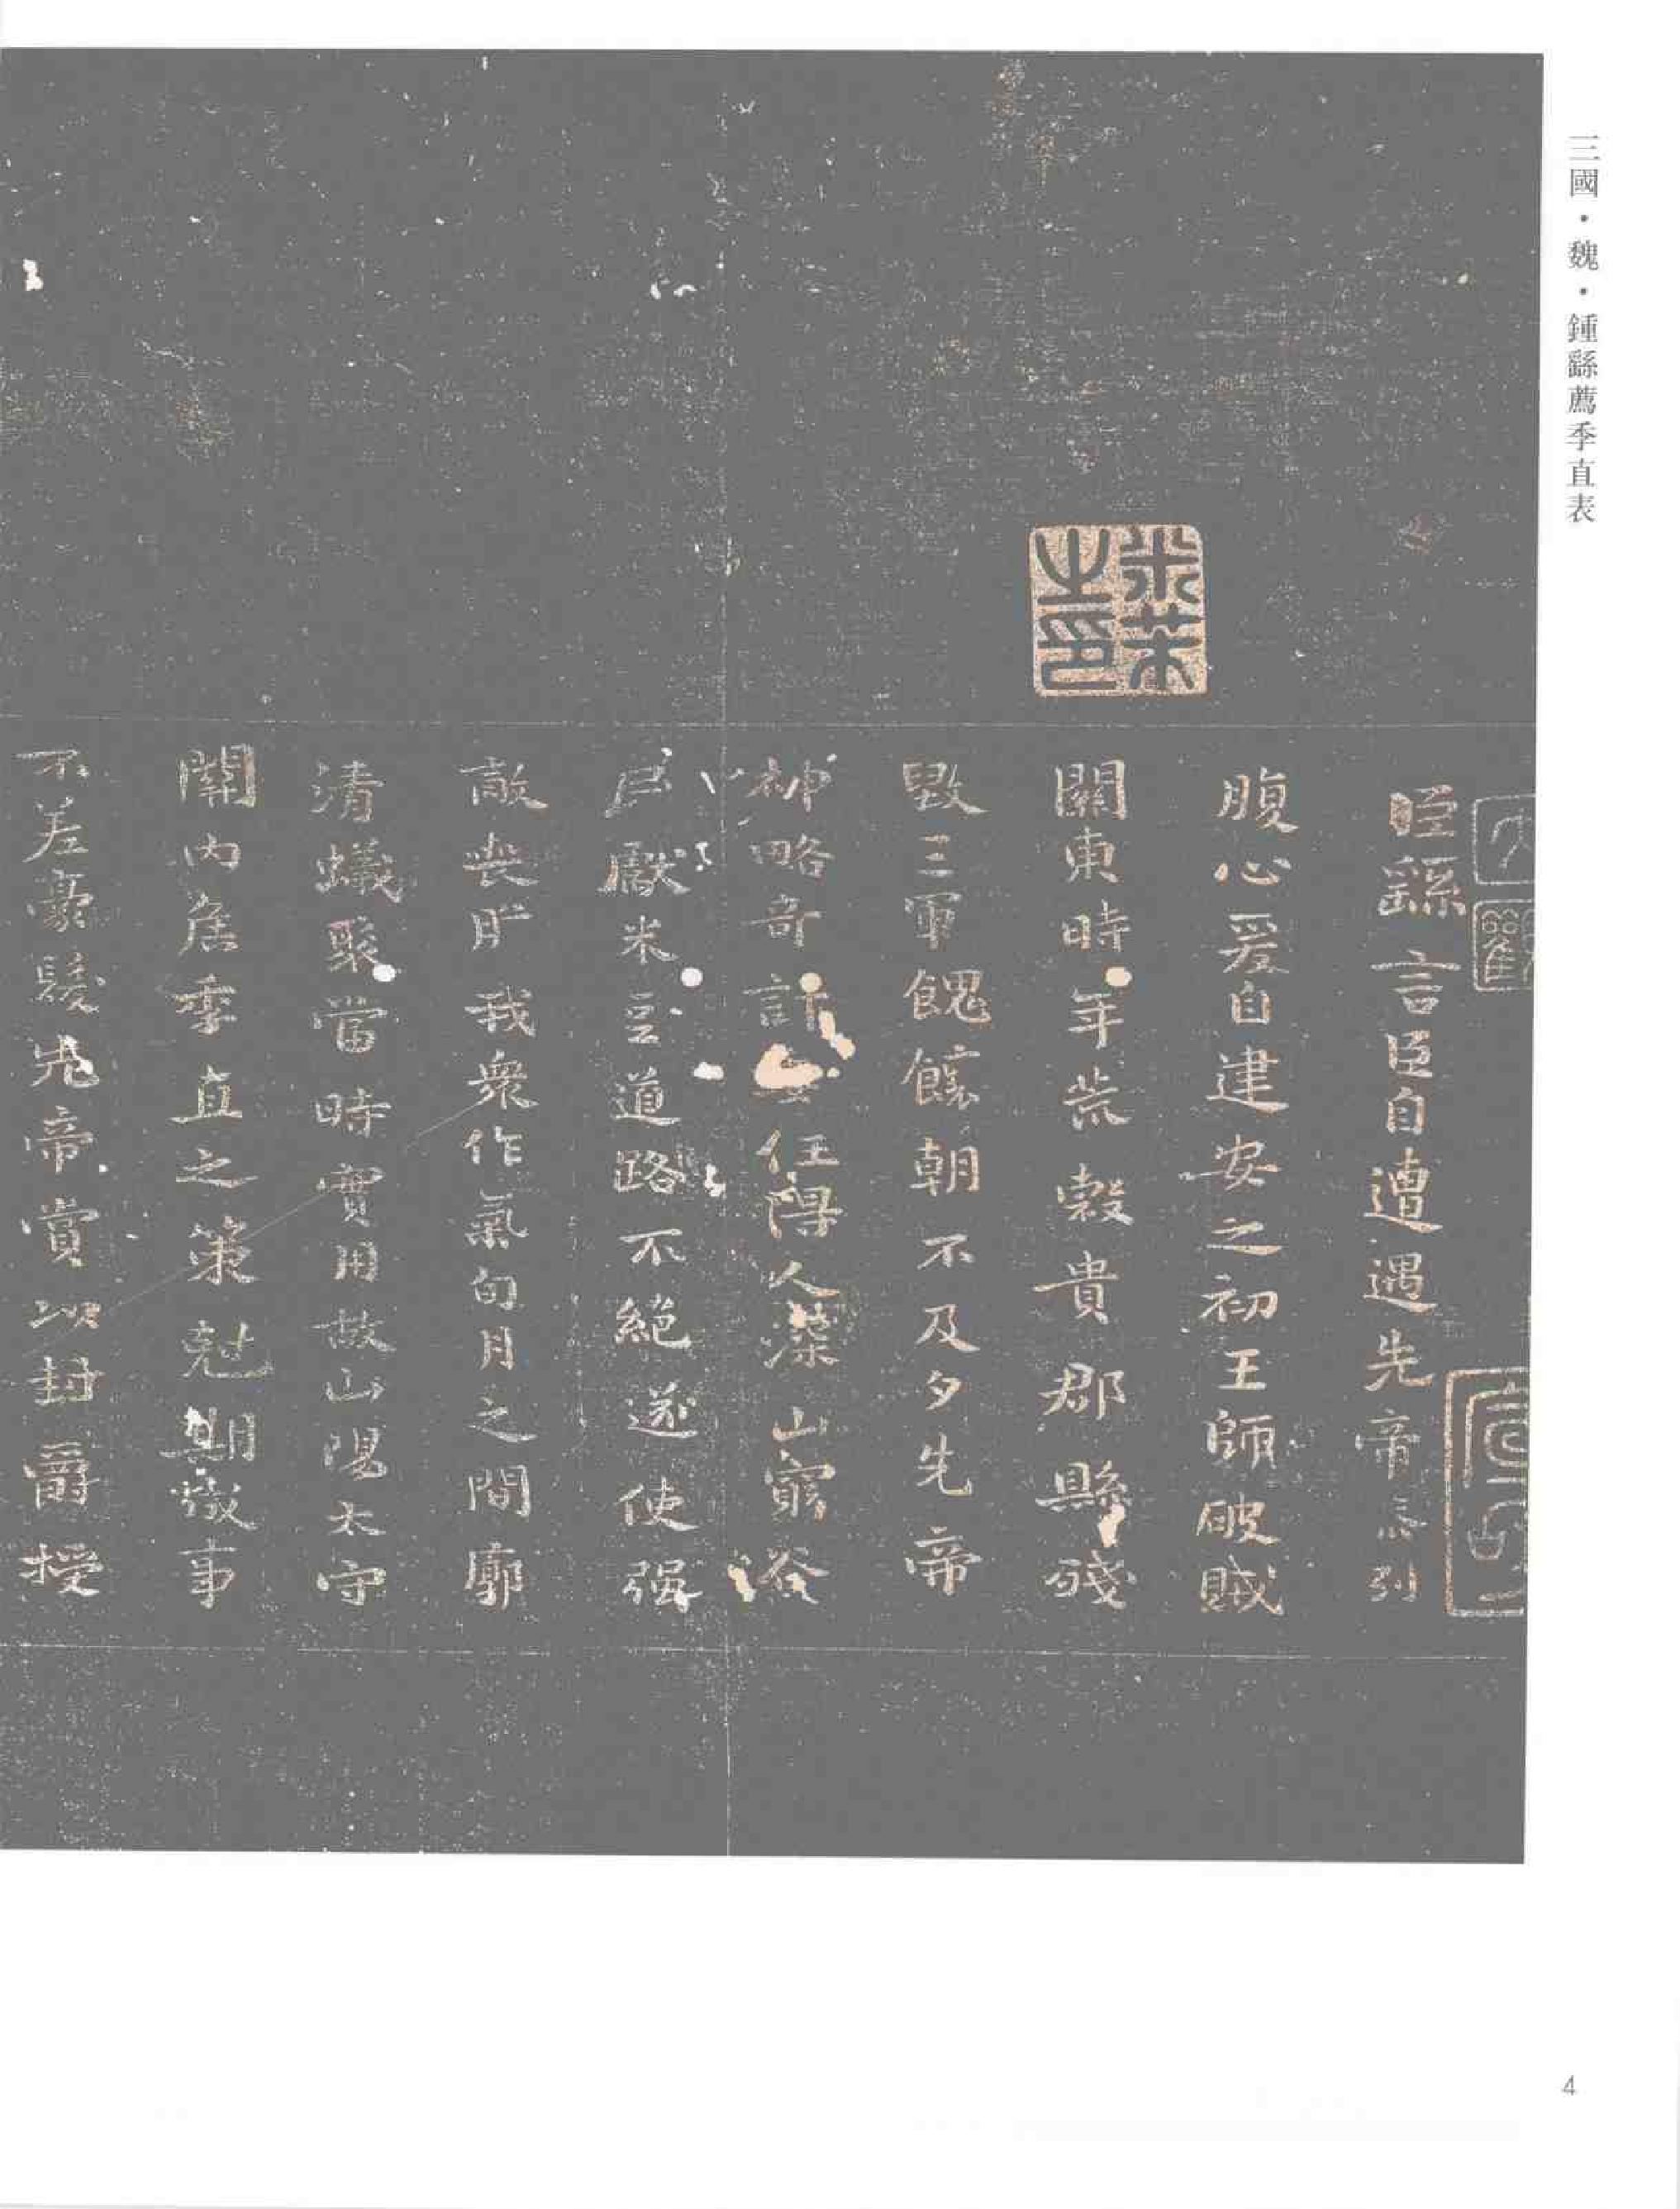 三國·魏·鍾繇薦季直表
臣繇言臣自遭遇先帝忝列
腹心爰自建安之初王師破賊
關東時年荒穀貴郡縣殘
毀三軍餽饟朝不及夕先帝
神略奇計委任得人深山窮谷
民獻米豆道路不絕遂使强
敵喪膽我衆作氣旬月之間廓
清蟻聚當時實用故山陽太守
關內侯季直之策剋期成事
不差豪髮先帝賞以封爵授
米芾之印
4